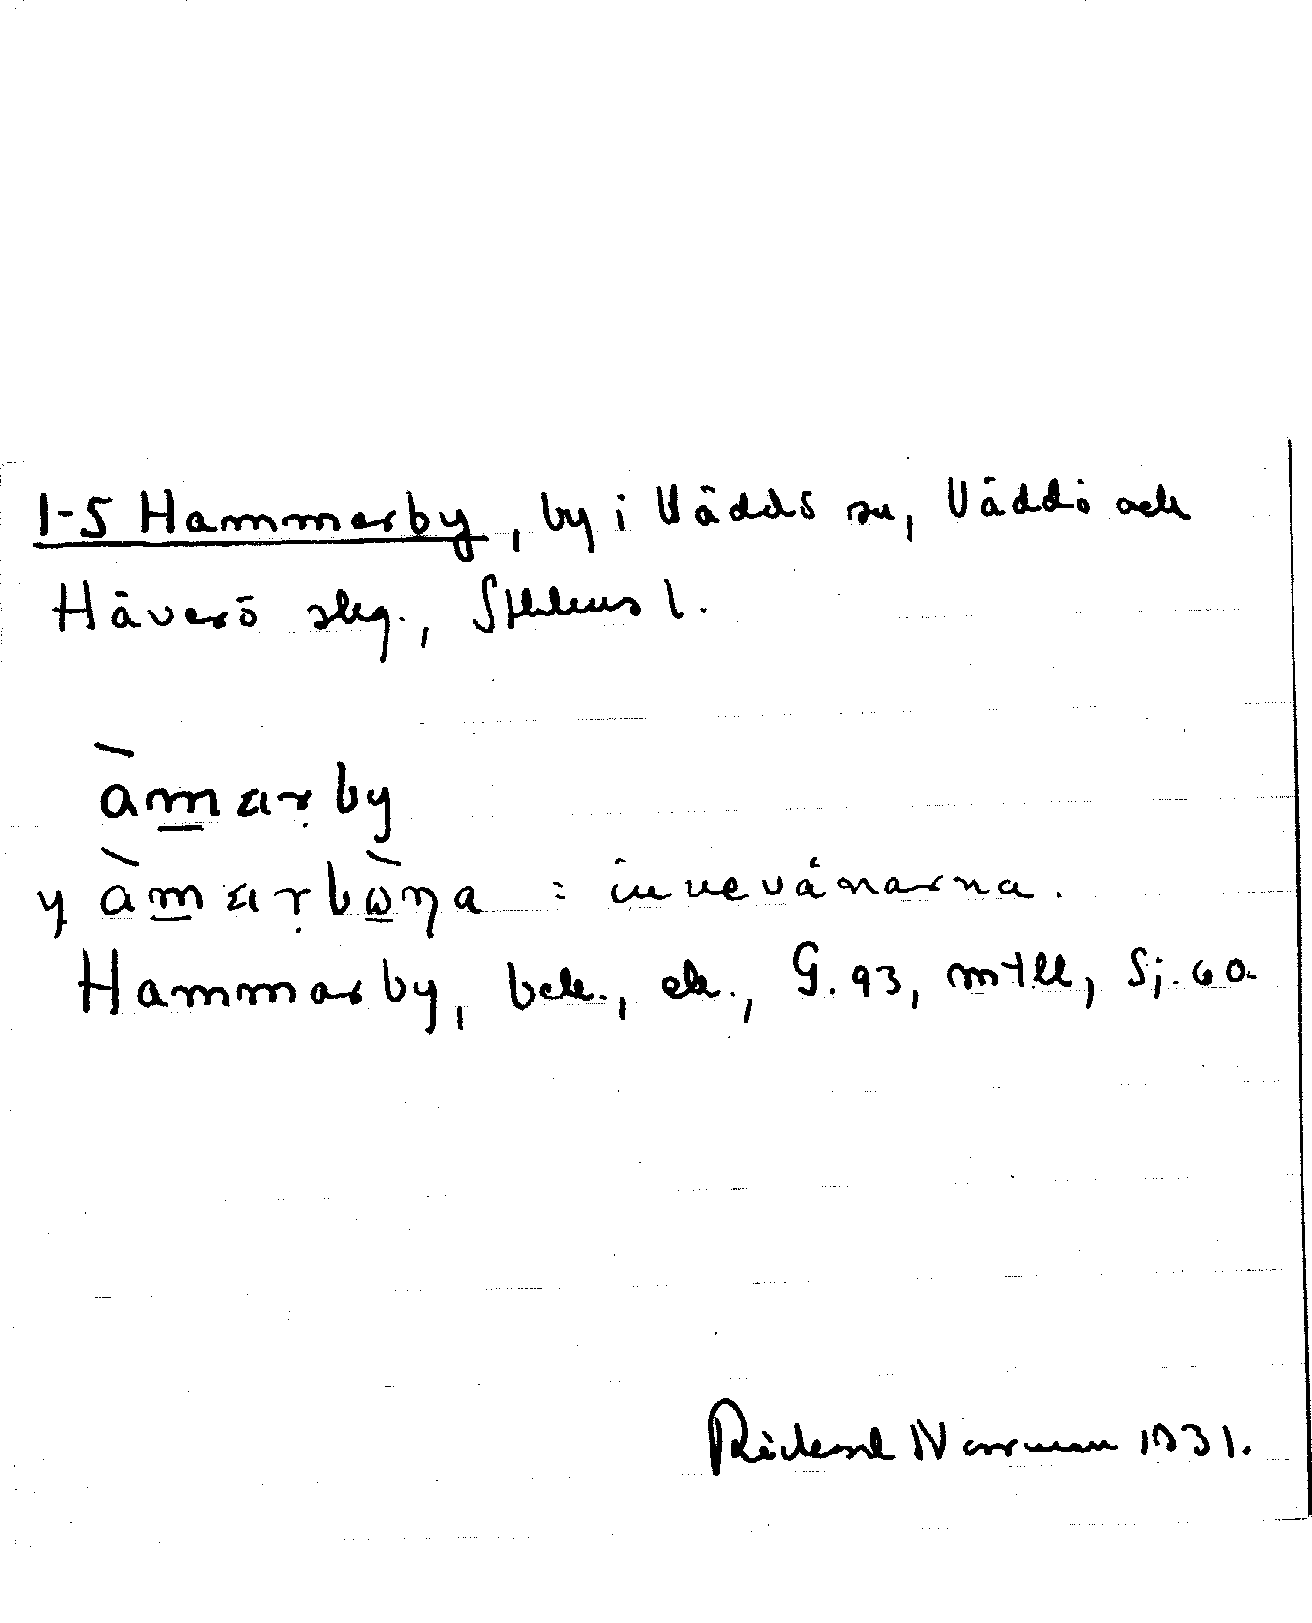 1-5 Hammarby, by i Väddö sn, Väddö och
Häverö skg., Sthlms l.
àmarby
y àmarbòṇa : innevånarna.
Hammarby, bek., ek., G. 93, mtll, Sj. 60.
Rickard Norrman 1931.